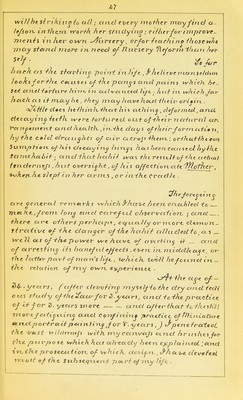 47
will be striking to all; and every mother may find a
lesson in them worth her studying; either for improve-
ments in her own Nursery, or for teaching those who
may stand more in need of Nursery Reform than her
self.
So far
back as the starting point in life, I believe man seldom
looks for the causes of the pangs and pains which be-
set and torture him in advanced life; but in which, far
back as it may be, they may have had their origin.
Little does he think that his aching, deformed, and
decaying teeth were tortured out of their natural ar-
rangement and health, in the days of their formation,
by the cold draughts of air across them; or that the con
sumption of his decaying lungs has been caused by the
same habit; and that habit was the result of the actual
tenderness, but oversight, of his affectionate Mother,
when he slept in her arms, or in the cradle.
The foregoing
are general remarks which I have been enabled to
make, from long and careful observation; and
there are others perhaps, equally or more demon-
strative of the danger of the habit alluded to, as
well as of the power we have of averting it and
of arresting its baneful effects even in middle age, or
the latter part of man's life, which will be found in
the relation of my own experience.
At the age of
34 years, (after devoting myself to the dry and tedi
ous study of the Law for 3 years, and to the practice
of it for 3 years more and after that to the still
more fatiguing and confining practice of Miniature
and portrait painting, for 8 years,) I penetrated
the vast wilderness with my canvass and brushes, for
the purpose which has already been explained; and
in the prosecution of which design, I have devoted
most of the subsequent part of my life.